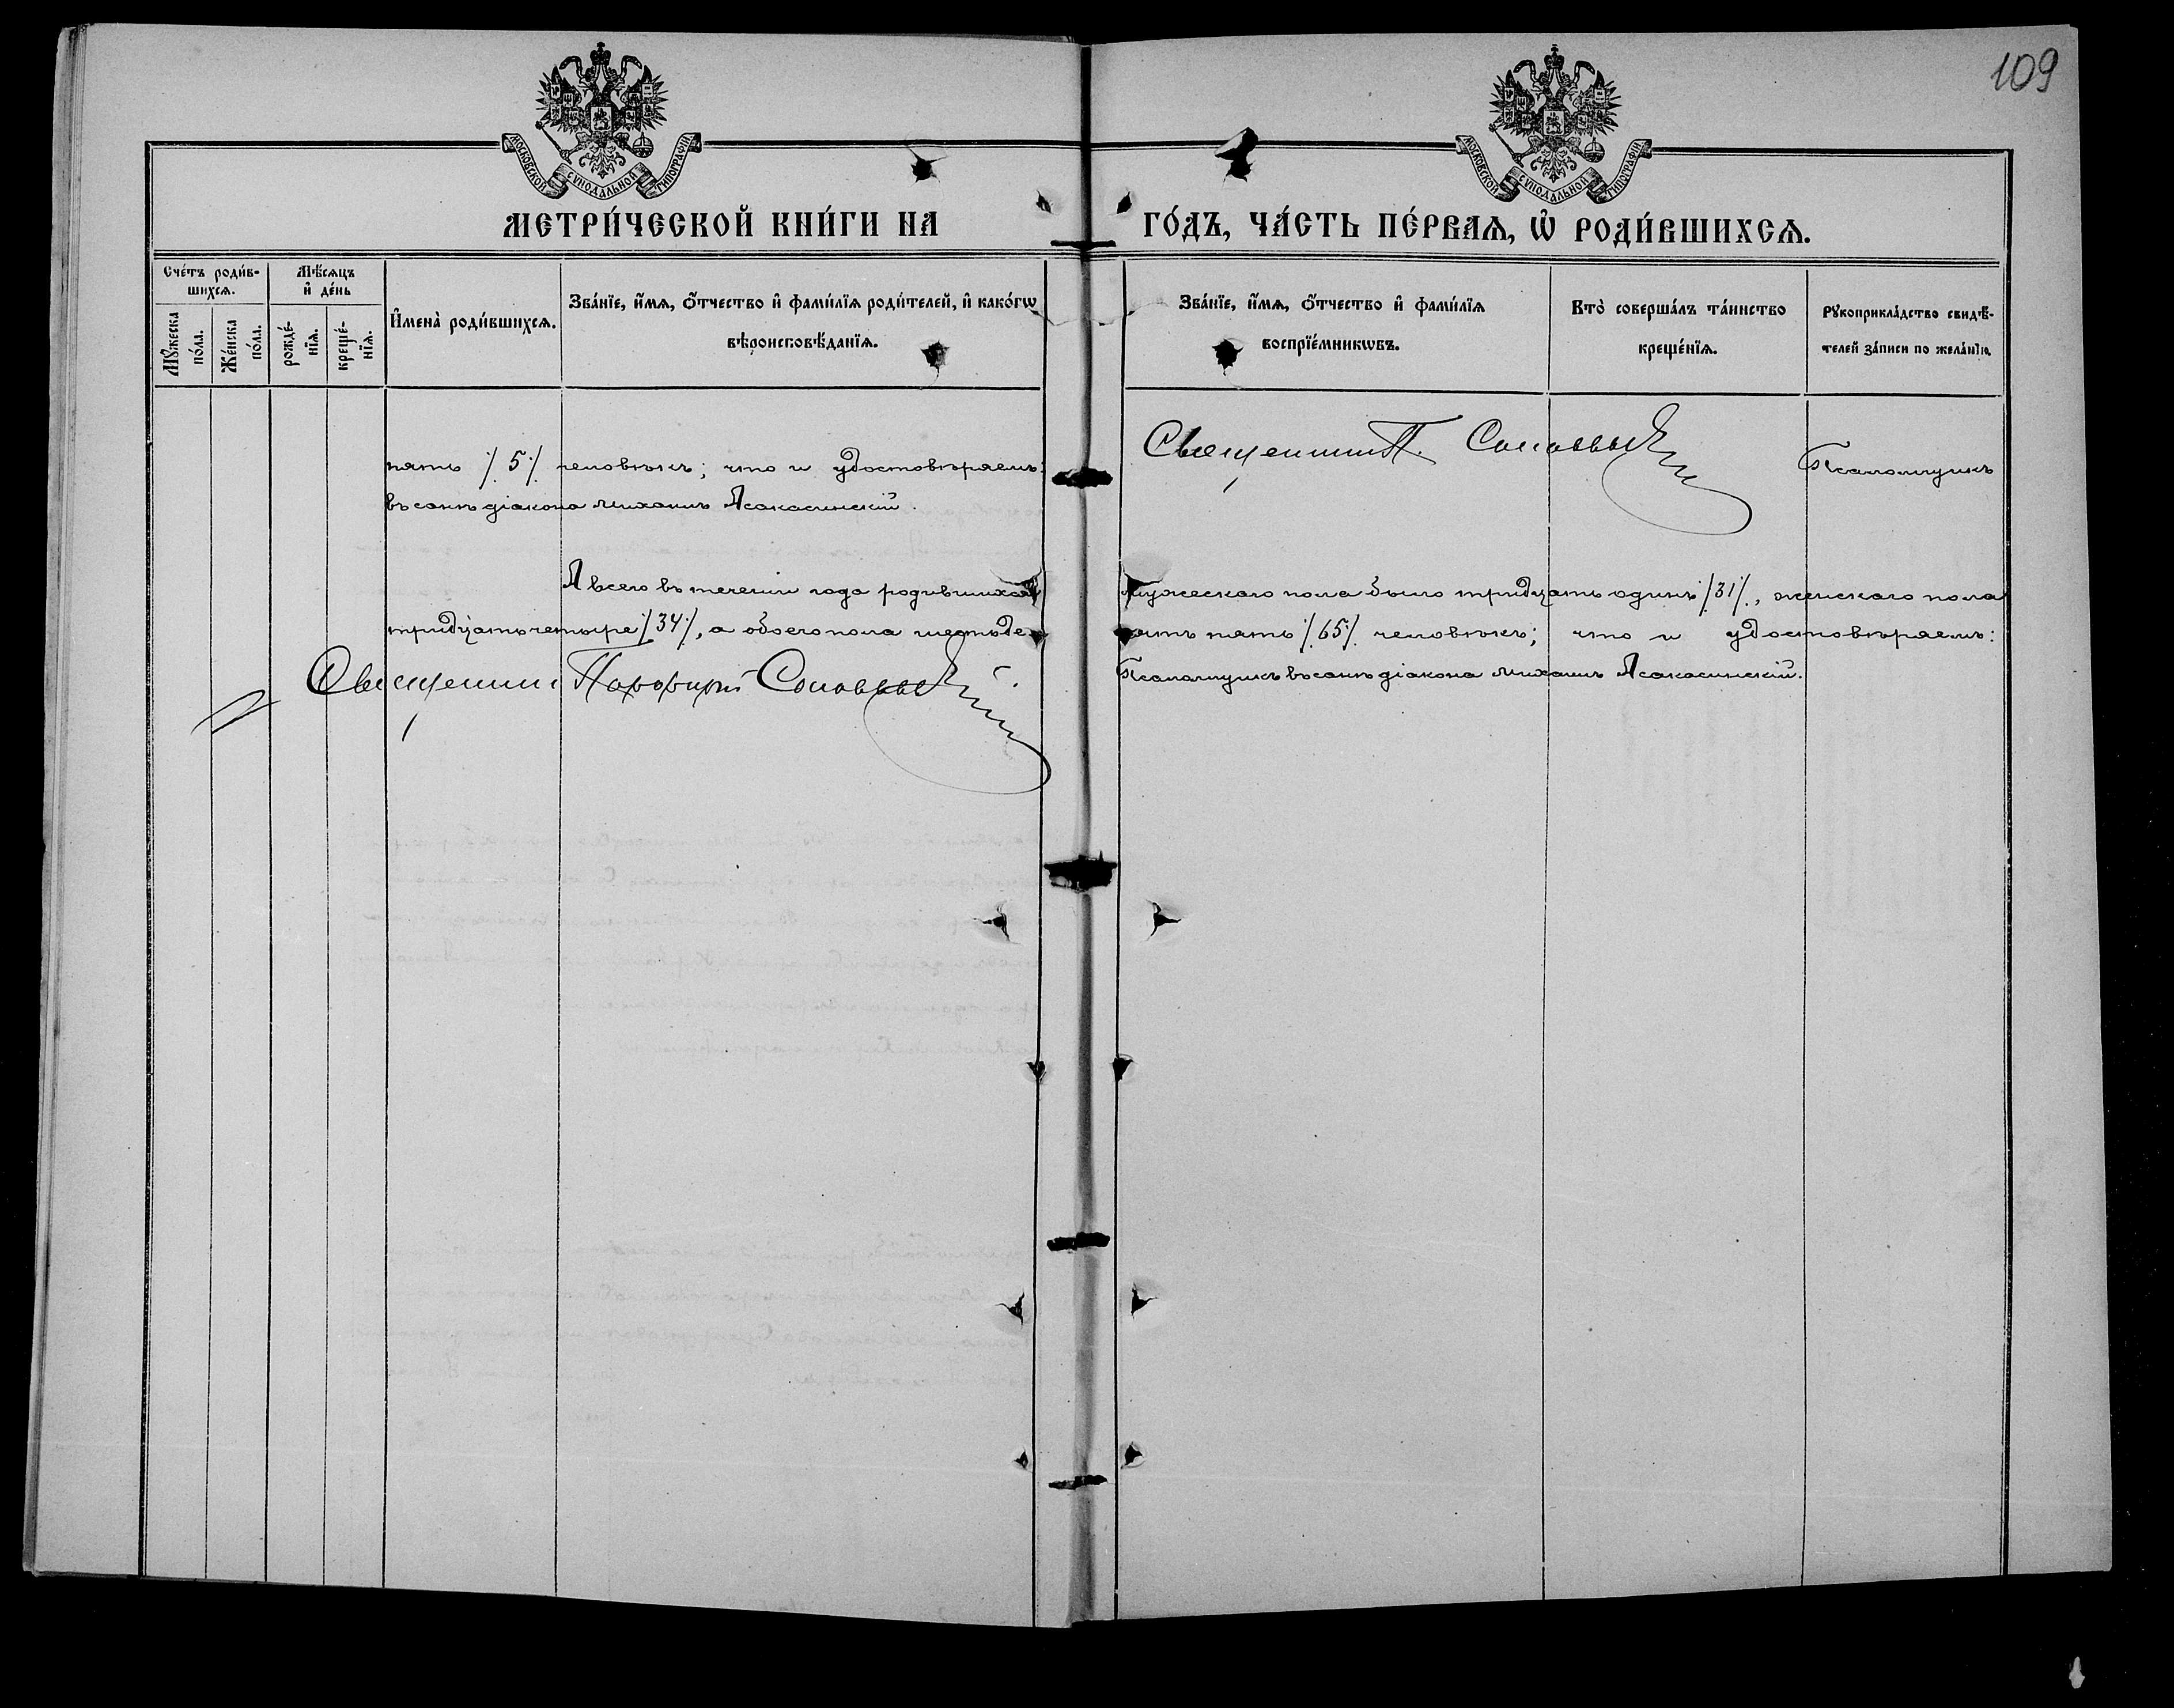 109
МОСКОВСКОЙ СѴНОДАЛЬНОЙ ТИПОГРАФІИ
МОСКОВСКОЙ СѴНОДАЛЬНОЙ ТИПОГРАФІИ
МЕТРИ́ЧЕСКОЙ КНИ́ГИ НА ГО́ДЪ, ЧА́СТЬ ПЕ́РВАѦ, Ѡ҆ РОДИ́ВШИХСѦ.
Сче́тъ роди́в-
шихсѧ.
Мѣ́сѧцъ
и҆ де́нь
Мꙋ́жеска
по́ла.
Же́нска
по́ла.
рожде́-
нїѧ.
креще́-
нїѧ.
И҆мена̀ роди́вшихсѧ.
Зва́нїе, и҆́мѧ, ѻ҆́тчество и҆ фами́лїѧ роди́телей, и҆ како́гѡ
вѣроисповѣ́данїѧ.
Зва́нїе, и҆́мѧ, ѻ҆́тчество и҆ фами́лїѧ
воспрїе́мникѡвъ.
Кто̀ соверша́лъ та́инство
креще́нїѧ.
Рꙋкоприкла́дство свидѣ́-
телей за́писи по жела́нїю.
пять /5/ человѣкъ; что и удостовѣряемъ: Священникъ П. Соловьевъ Псаломщикъ
въ санѣ діакона Михаилъ Асакасинскій.
А всего въ теченіи года родившихся мужескаго пола было тридцать одинъ /31/, женскаго пола
тридцать четыре /34/, а обоего пола шестьде-сятъ пять /65/ человѣкъ; что и удостовѣряемъ:
Священникъ Порфирій Соловьевъ Псаломщикъ въ санѣ діакона Михаилъ Асакасинскій.